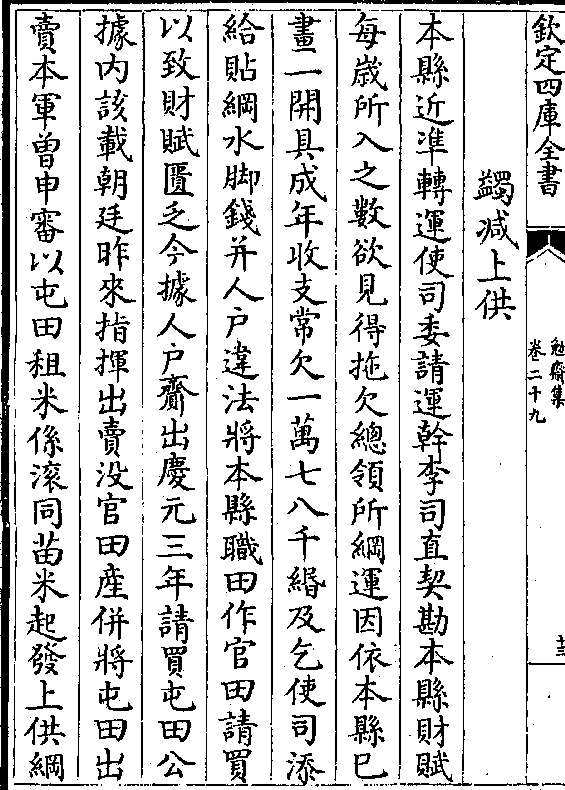 欽定四庫全書
勉齋集
卷二十九
蠲减上供
本縣近准轉運使司委請運幹李司直契勘本縣財賦
每歲所入之數欲見得拖欠總領所綱運因依本縣已
畫一開具成年收支常欠一萬七八千緡及乞使司添
給貼綱水脚錢并人户違法將本縣職田作官田請買
以致財賦匱乏今據人户齎出慶元三年請買屯田公
據内該載朝廷昨來指揮出賣没官田產併將屯田出
賣本軍曽申審以屯田租米係滚同苗米起發上供綱